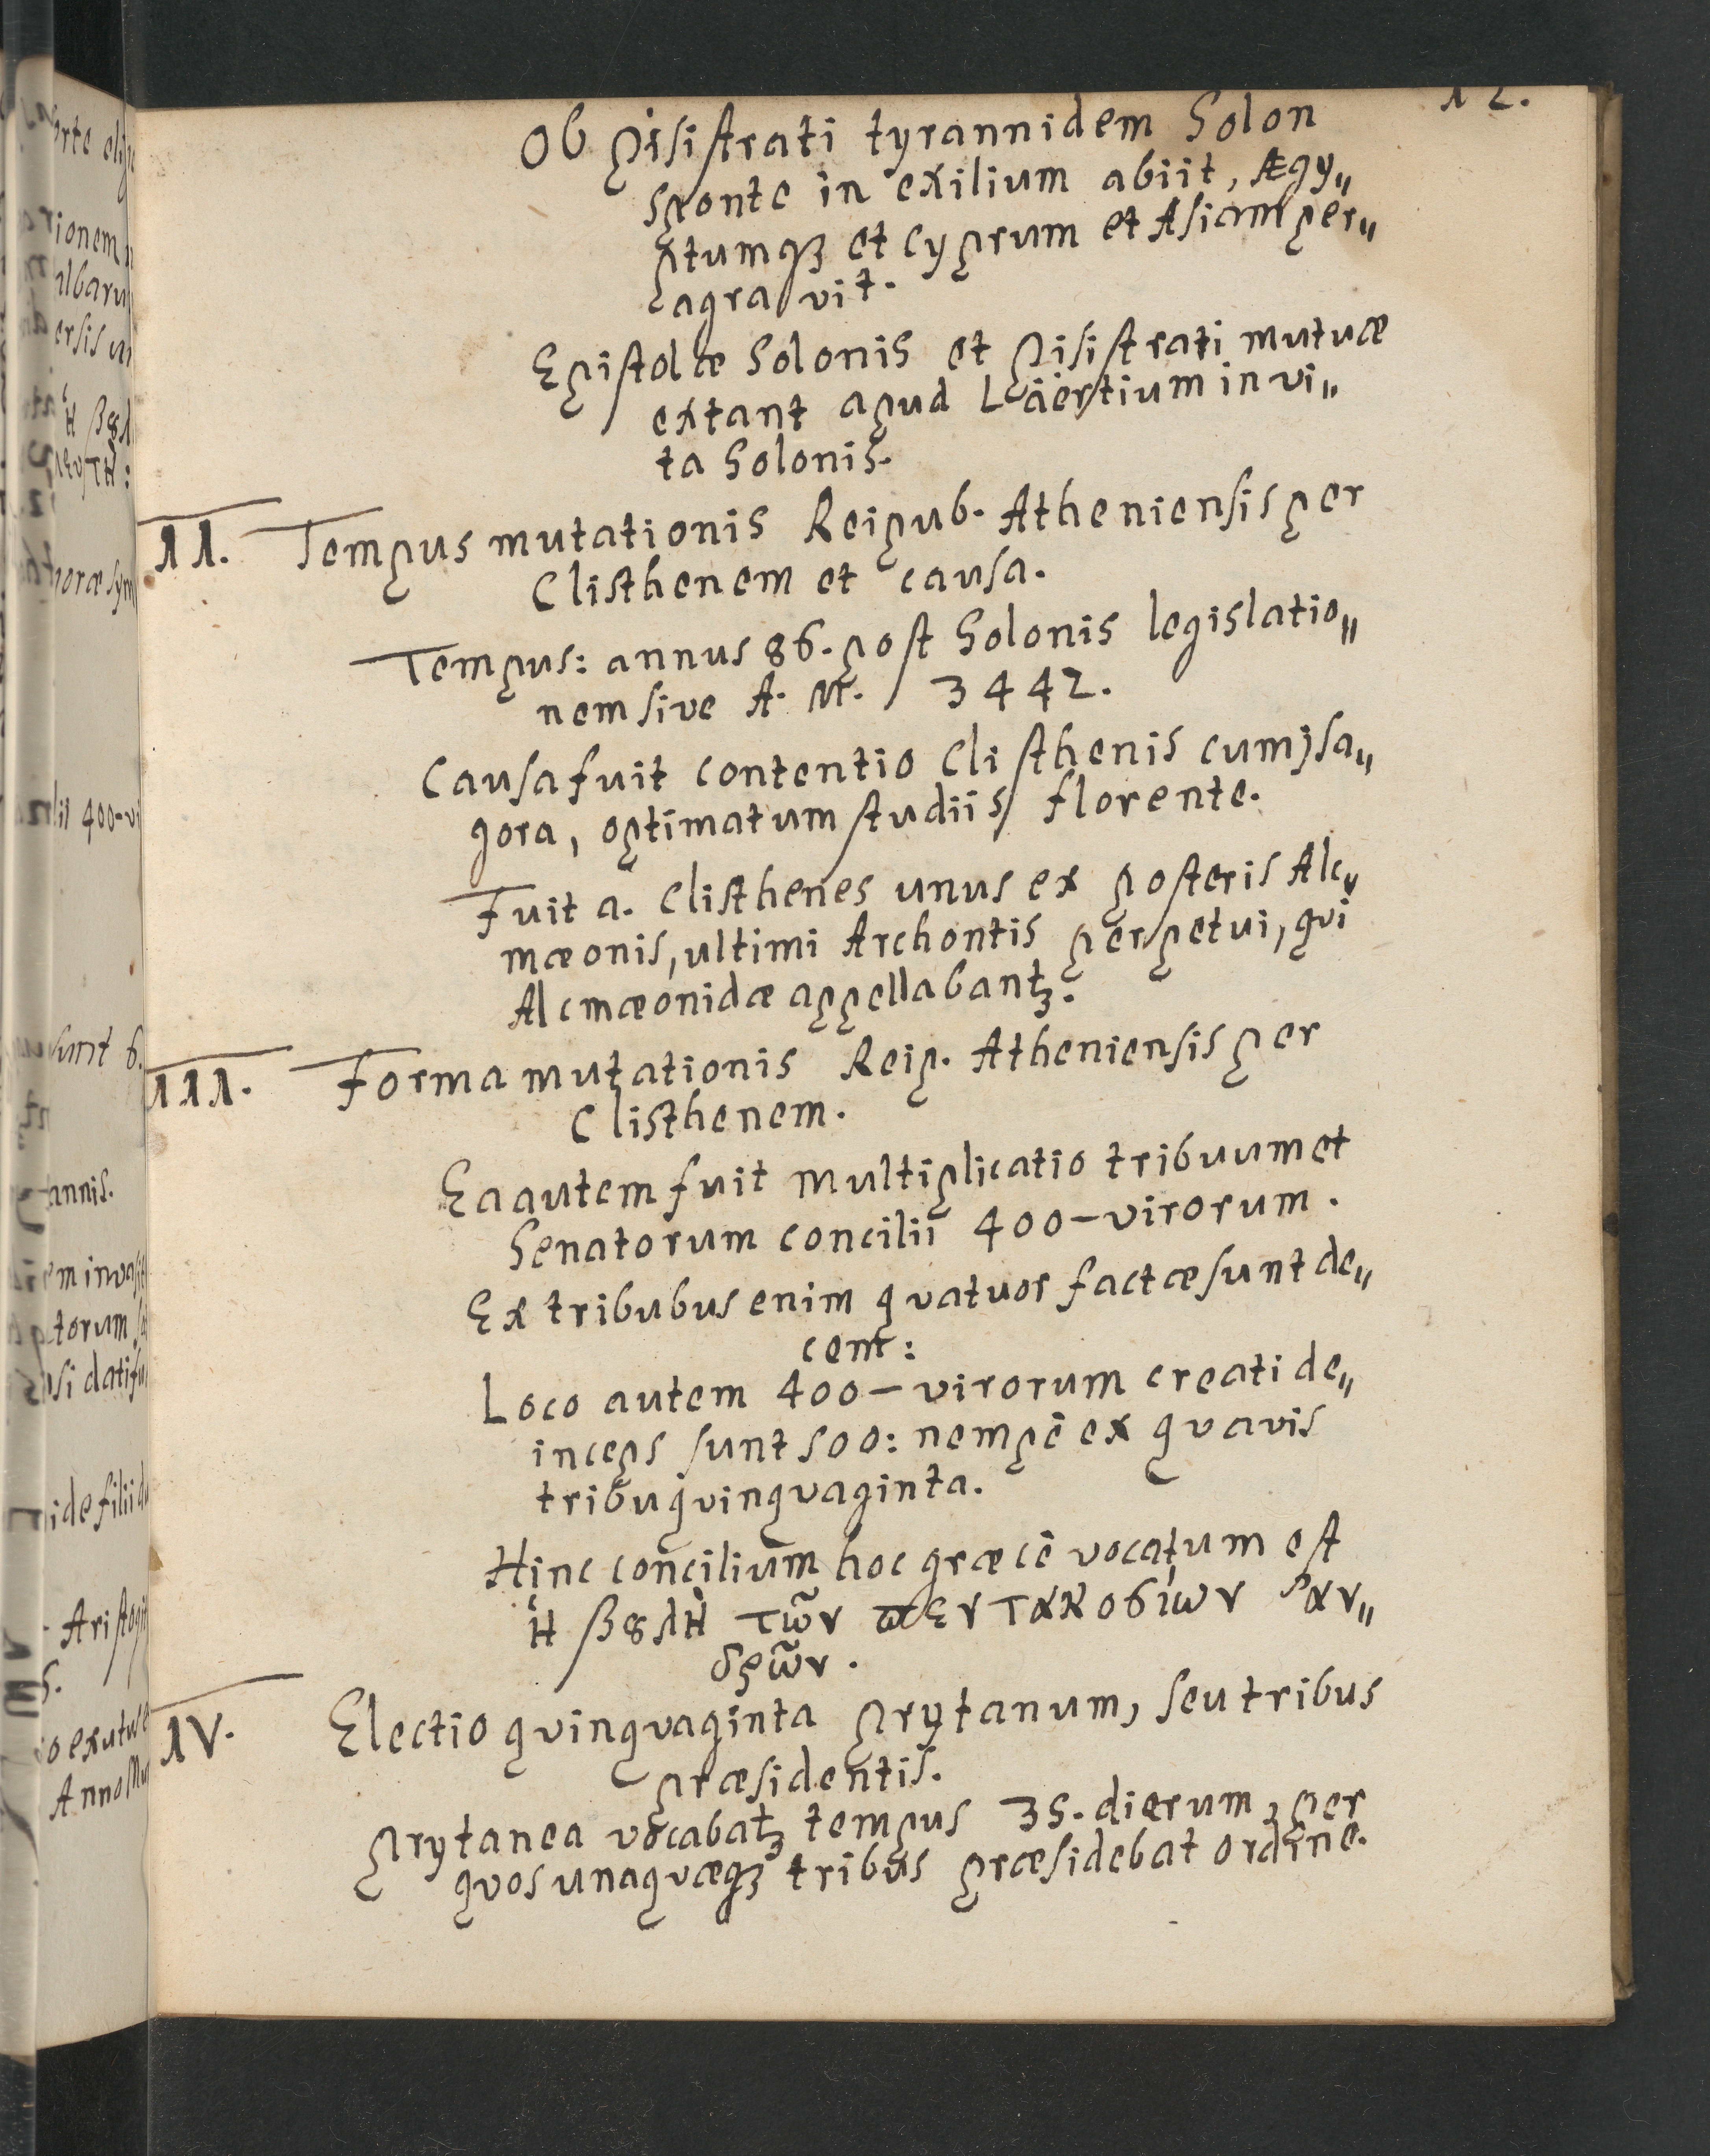 12.
Ob Pisistrati tyrannidem Solon
sponte in exilium abiit, Ægy„
ptumqꝫ et Cyprum et Asiam per„
agravit.
Epistolæ Solonis et Pisistrati mutuæ
extant apud Läertium in vi„
ta Solonis.
II. Tempus mutationis Reipub. Atheniensis per
Clisthenem et causa.
Tempus: annus 86. post Solonis legislatio„
nem sive A. M. 3442.
Causa fuit contentio Clisthenis cum Jsa„
gora, optimatum studiis florente.
Fuit a. Clisthenes unus ex posteris Alc„
mæonis, ultimi Archontis perpetui, qvi
Alcmæonidæ appellabantꝫ.
III. Forma mutationis Reip. Atheniensis per
Clisthenem.
Ea autem fuit multiplicatio tribuum et
Senatorum concilii 400-virorum.
Ex tribubus enim qvatuor factæ sunt de„
cem:
Loco autem 400-virorum creati de„
inceps sunt 500: nempè ex qvavis
tribu qvinqvaginta.
Hinc concilium hoc græcè vocatum est
ἡ βȣλὴ τῶν ϖεντακοσίων ἀν„
δρῶν.
IV. Electio qvinqvaginta Prytanum, seu tribus
præsidentis.
Prytanea vocabatꝫ tempus 35. dierum, per
qvos unaqvæqꝫ tribus præsidebat ordine.